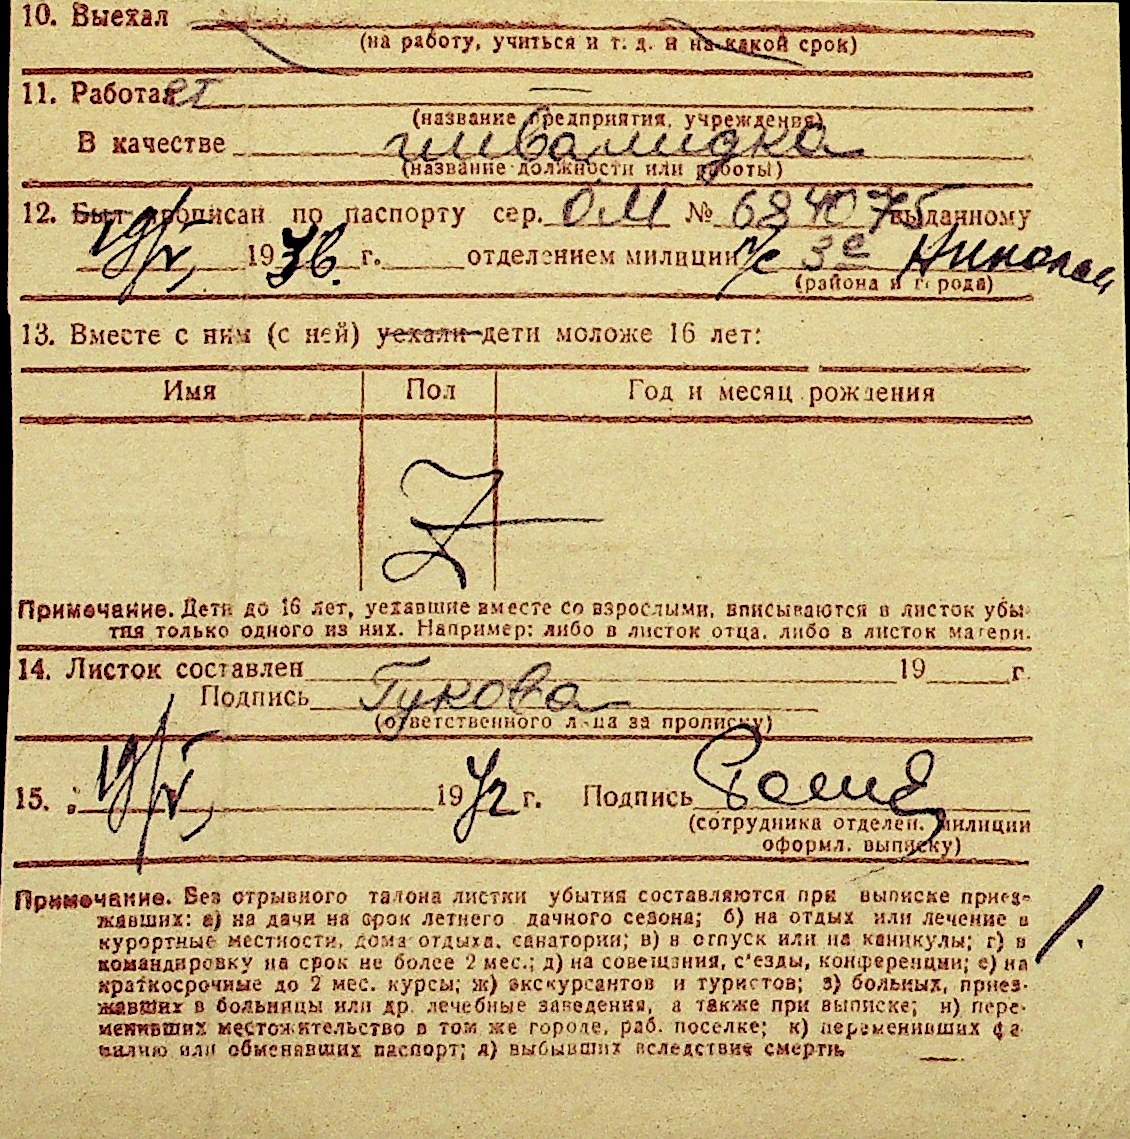 10. Выехал
(на работу, учиться и т. д. и на какой срок)
11. Работает
(название предприятия, учреждения)
В качестве инвалидка
(название должности или работы)
12. Был прописан по паспорту сер. ОМ № 684075 выданному
19/V 1936 г. отделением милиции 3е
(района и города)
13. Вместе с ним (с ней) уехали дети моложе 16 лет:
Имя Пол Год и месяц рождения
Z
Примечание. Дети до 16 лет, уехавшие вместе со взрослыми, вписываются в листок убы-
тия только одного из них. Например: либо в листок отца, либо в листок матери.
14. Листок составлен 19 г.
Подпись Гукова
(ответственного лица за прописку)
15. 19/V 1942 г. Подпись
(сотрудника отделен. милиции
оформл. выписку)
Примечание. Без отрывного талона листки убытия составляются при выписке приез-
жавших: а) на дачи на срок летнего дачного сезона; б) на отдых или лечение в
курортные местности, дома отдыха, санатории; в) в отпуск или на каникулы; г) в
командировку на срок не более 2 мес.; д) на совещания, с'езды, конференции; е) на
краткосрочные до 2 мес. курсы; ж) экскурсантов и туристов; з) больных, приез-
жавших в больницы или др. лечебные заведения, а также при выписке; и) пере-
менивших местожительство в том же городе, раб. поселке; к) переменивших фа-
милию или обменявших паспорт; л) выбывших вследствие смерти.